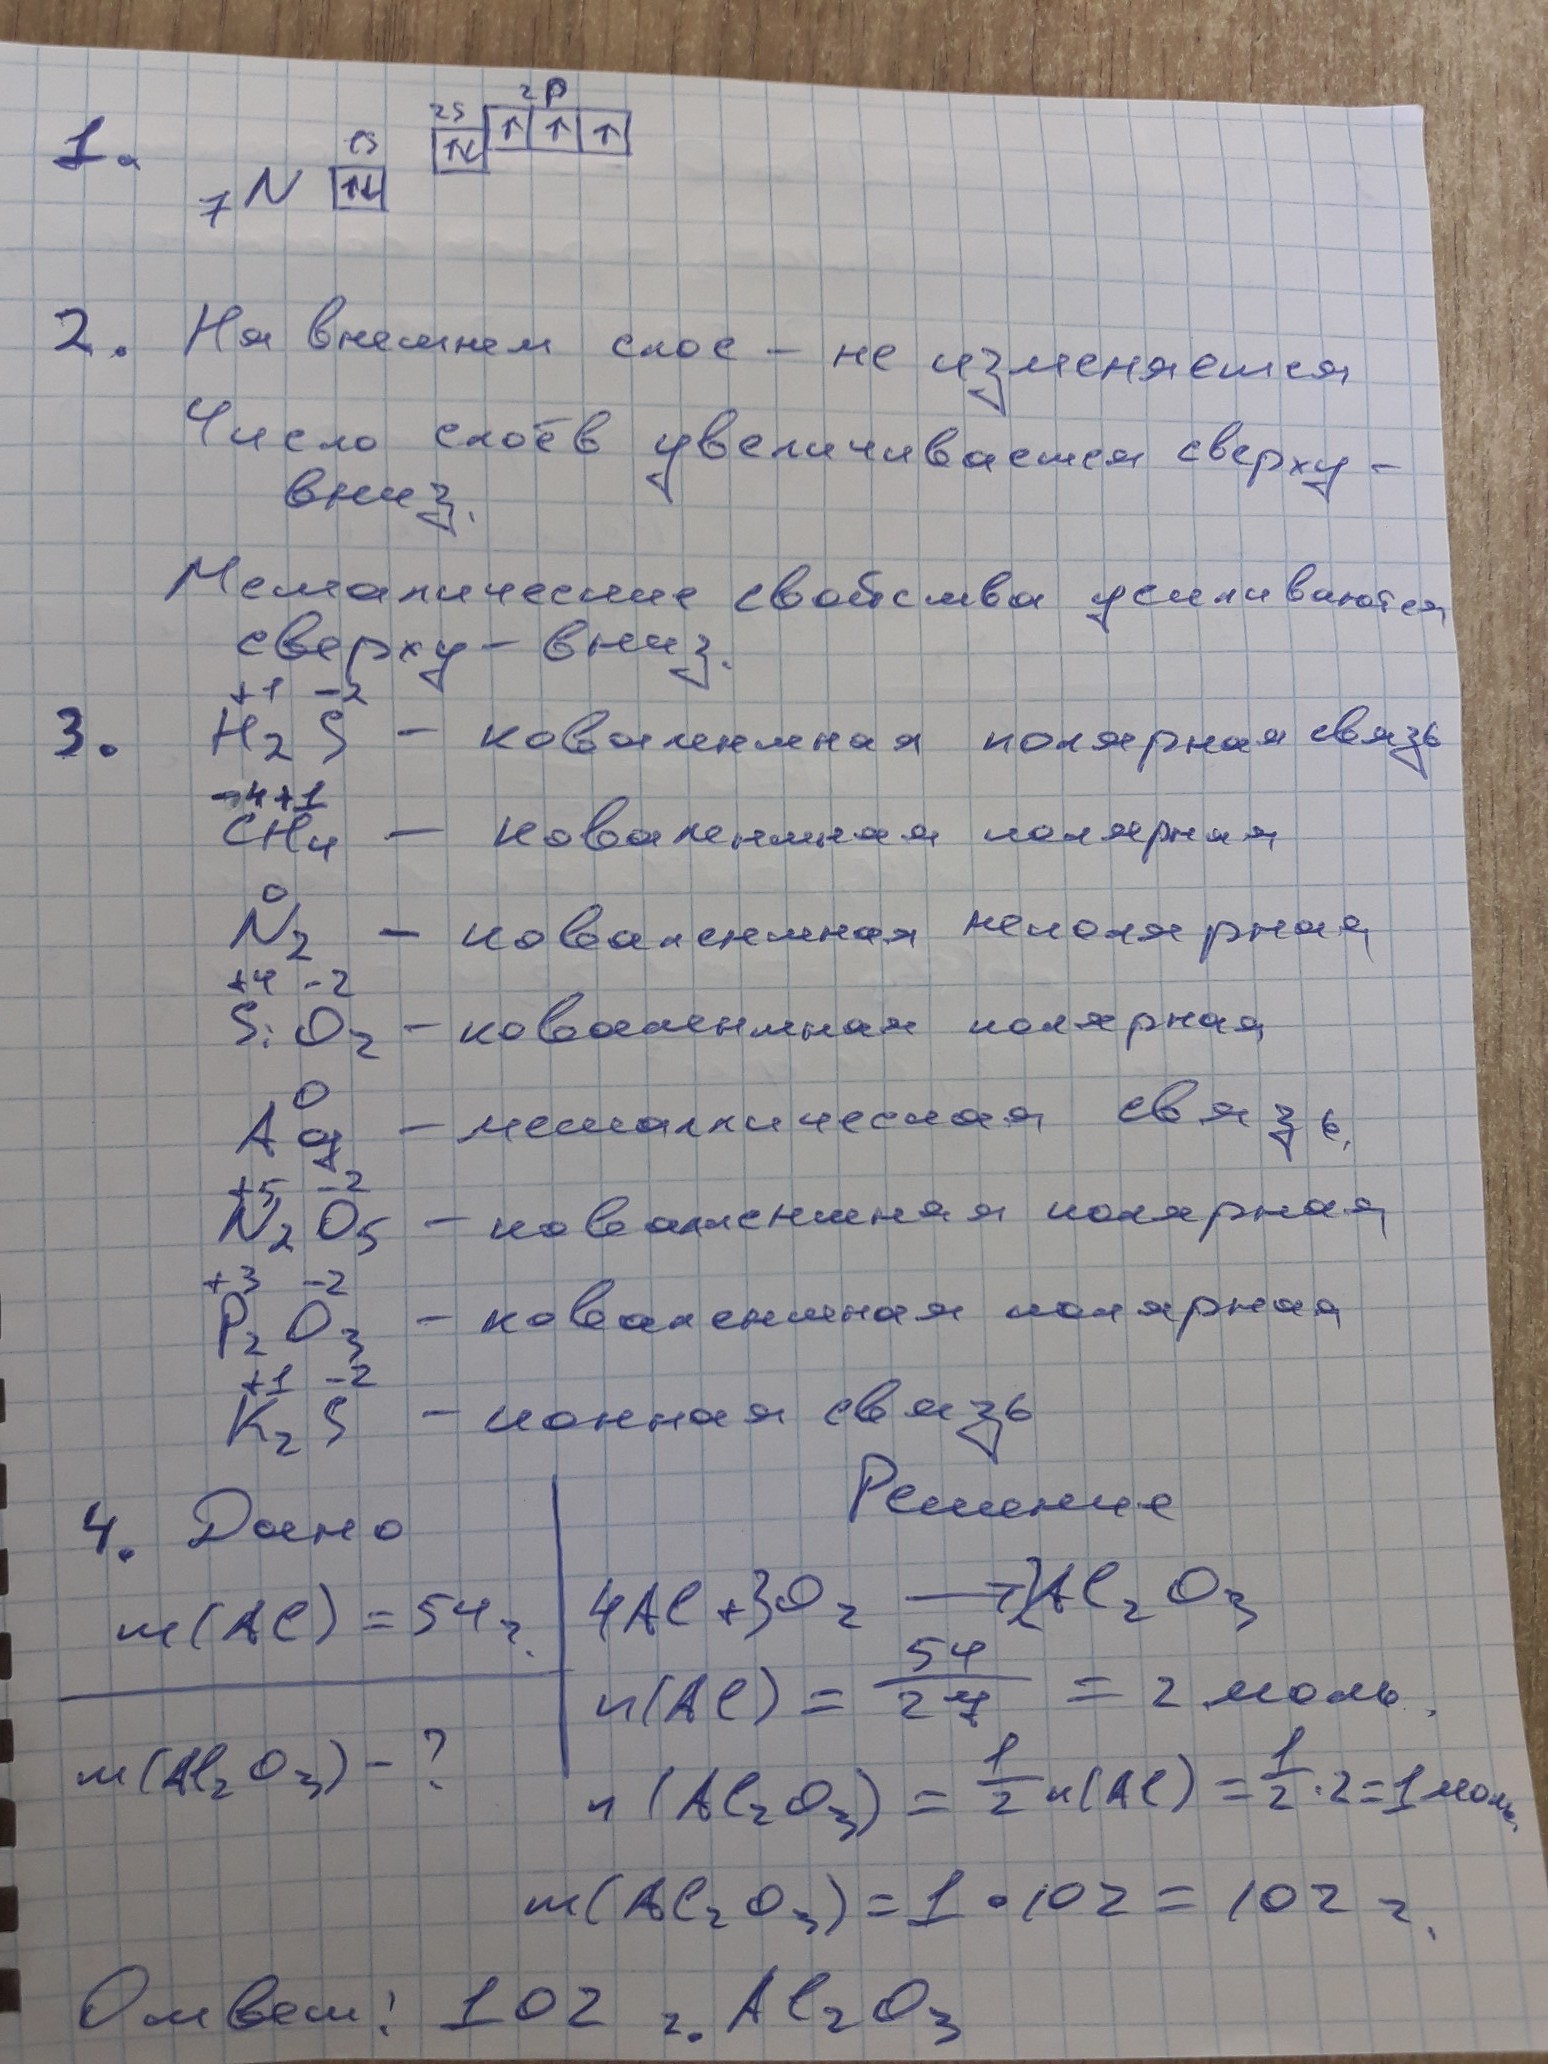 1.
1S 2S 2P
₇N ↑↓ ↑↓ ↑ ↑ ↑
2. На внешнем слое – не изменяется
Число слоёв увеличивается сверху –
вниз.
Металические свойства усиливаются
сверху – вниз.
+1 –2
3. H₂S – ковалентная полярная связь
–4 +1
CH₄ – ковалентная полярная
0
N₂ – ковалентная неполярная
+4 –2
SiO₂ – ковалентная полярная
0
Ag – металлическая связь.
+5 –2
N₂O₅ – ковалентная полярная
+3 –2
P₂O₃ – ковалентная полярная
+1 –2
K₂S – ионная связь
4. Дано
Решение
m(Al) = 54 г.
m(Al₂O₃) – ?
4Al + 3O₂ → 2Al₂O₃
n(Al) = 54/27 = 2 моль.
n(Al₂O₃) = 1/2 n(Al) = 1/2 · 2 = 1 моль.
m(Al₂O₃) = 1 · 102 = 102 г.
Ответ: 102 г. Al₂O₃